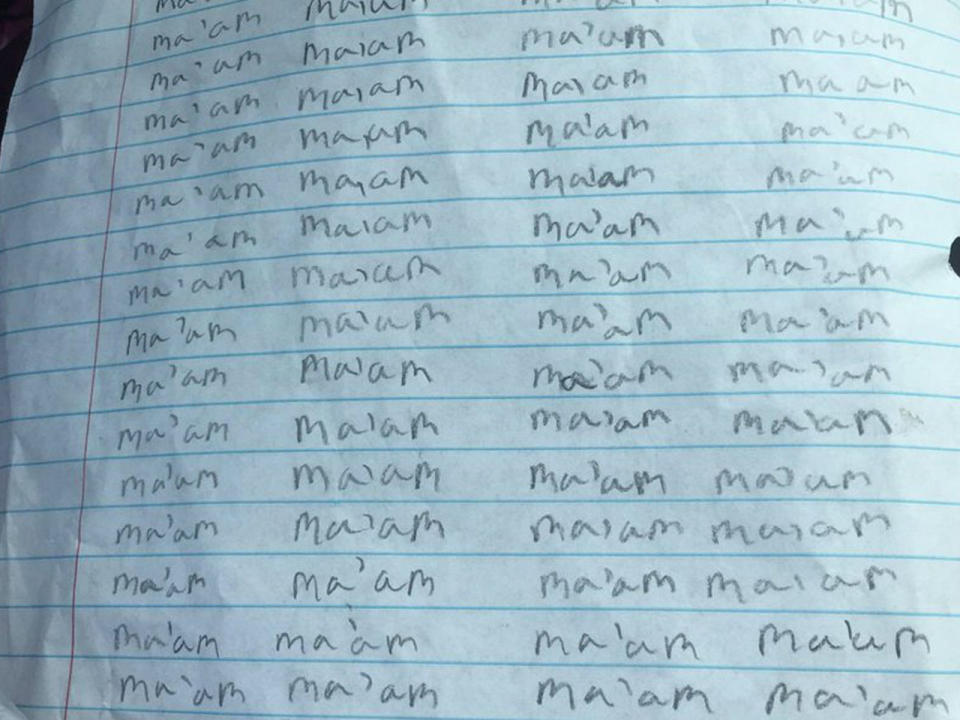 ma'am maiam ma'am ma'am
ma'am maiam ma'am maiam
ma'am maiam maiam ma am
ma'am ma'am ma'am ma'am
ma'am maiam ma'am ma'am
ma'am maiam ma'am ma'am
ma'am maiam ma'am ma'am
ma'am ma'am ma'am ma'am
ma'am ma'am ma'am ma'am
ma'am ma'am ma'am ma'am
ma'am ma'am ma'am ma'am
ma'am ma'am maiam maiam
ma'am ma'am ma'am maiam
ma'am ma'am ma'am ma'am
ma'am ma'am ma'am ma'am